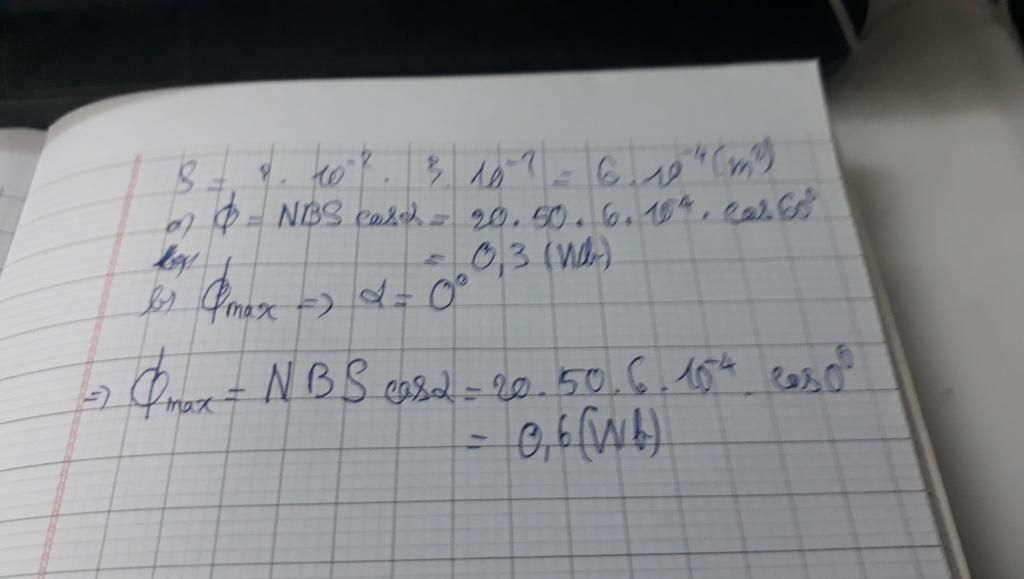 S = 2. 10⁻². 3. 10⁻² = 6. 10⁻⁴ (m²)
a) ϕ = NBS cosα = 20. 50. 6. 10⁻⁴. cos60⁰
= 0,3 (Wb)
b) ϕmax => α = 0⁰
=> ϕmax = NBS cosα = 20. 50. 6. 10⁻⁴. cos0⁰
= 0,6 (Wb)